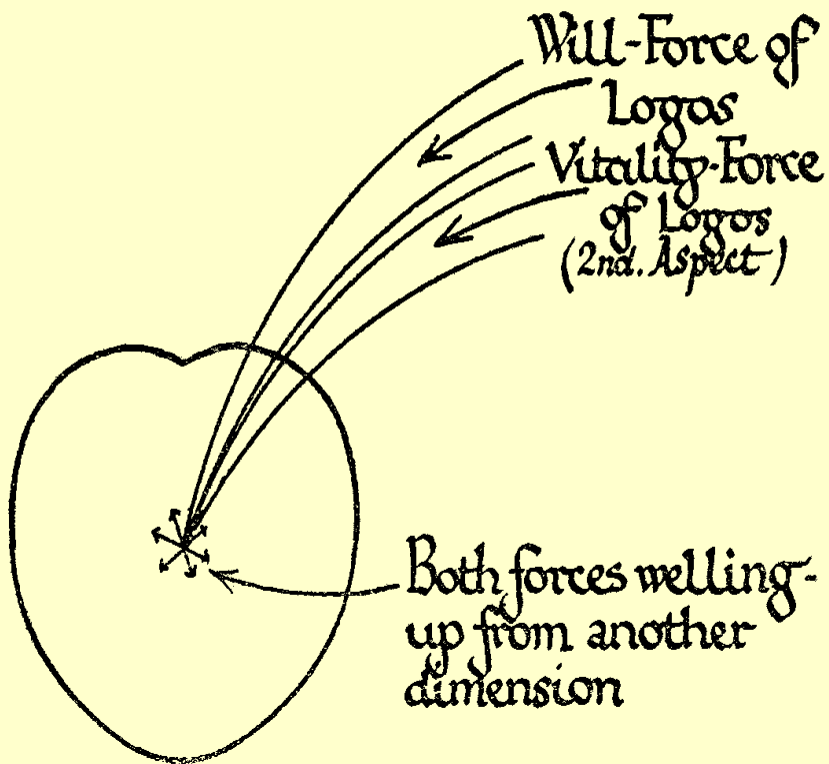 Will-Force of
Logos
Vitality-Force
of Logos
(2nd. Aspect)
Both forces welling-
up from another
dimension